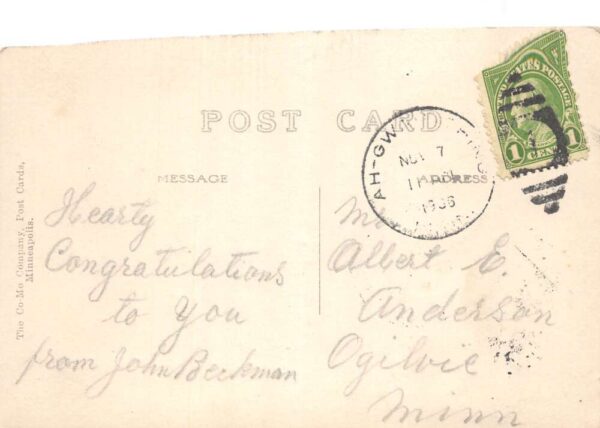 POST CARD
MESSAGE
ADDRESS
The Co-Mo Company, Post Cards,
Minneapolis.
AH-GWAH-CHING
NOV 7
1936
STATES POSTAGE
1 CENT 1
Hearty
Congratulations
to You
from John Beckman
Mr
Albert E.
Anderson
Ogilvie
Minn